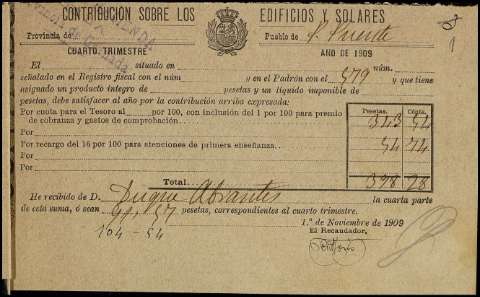 CONTRIBUCIÓN SOBRE LOS EDIFICIOS Y SOLARES
Provincia de Pueblo de P. Puente
CUARTO TRIMESTRE AÑO DE 1909
El situado en núm.
señalado en el Registro fiscal con el núm y en el Padrón con el 579 y que tiene
asignado un producto íntegro de pesetas y un líquido imponible de
pesetas, debe satisfacer al año por la contribución arriba expresada:
Pesetas. Cénts.
Por cuota para el Tesoro al por 100, con inclusión del 1 por 100 para premio
de cobranza y gastos de comprobación 343 54
Por
Por recargo del 16 por 100 para atenciones de primera enseñanza 54 74
Por
Total 398 28
He recibido de D. Duque Abrantes la cuarta parte
de esta suma, ó sean 99,57 pesetas, correspondientes al cuarto trimestre.
104-54
1.º de Noviembre de 1909
El Recaudador,